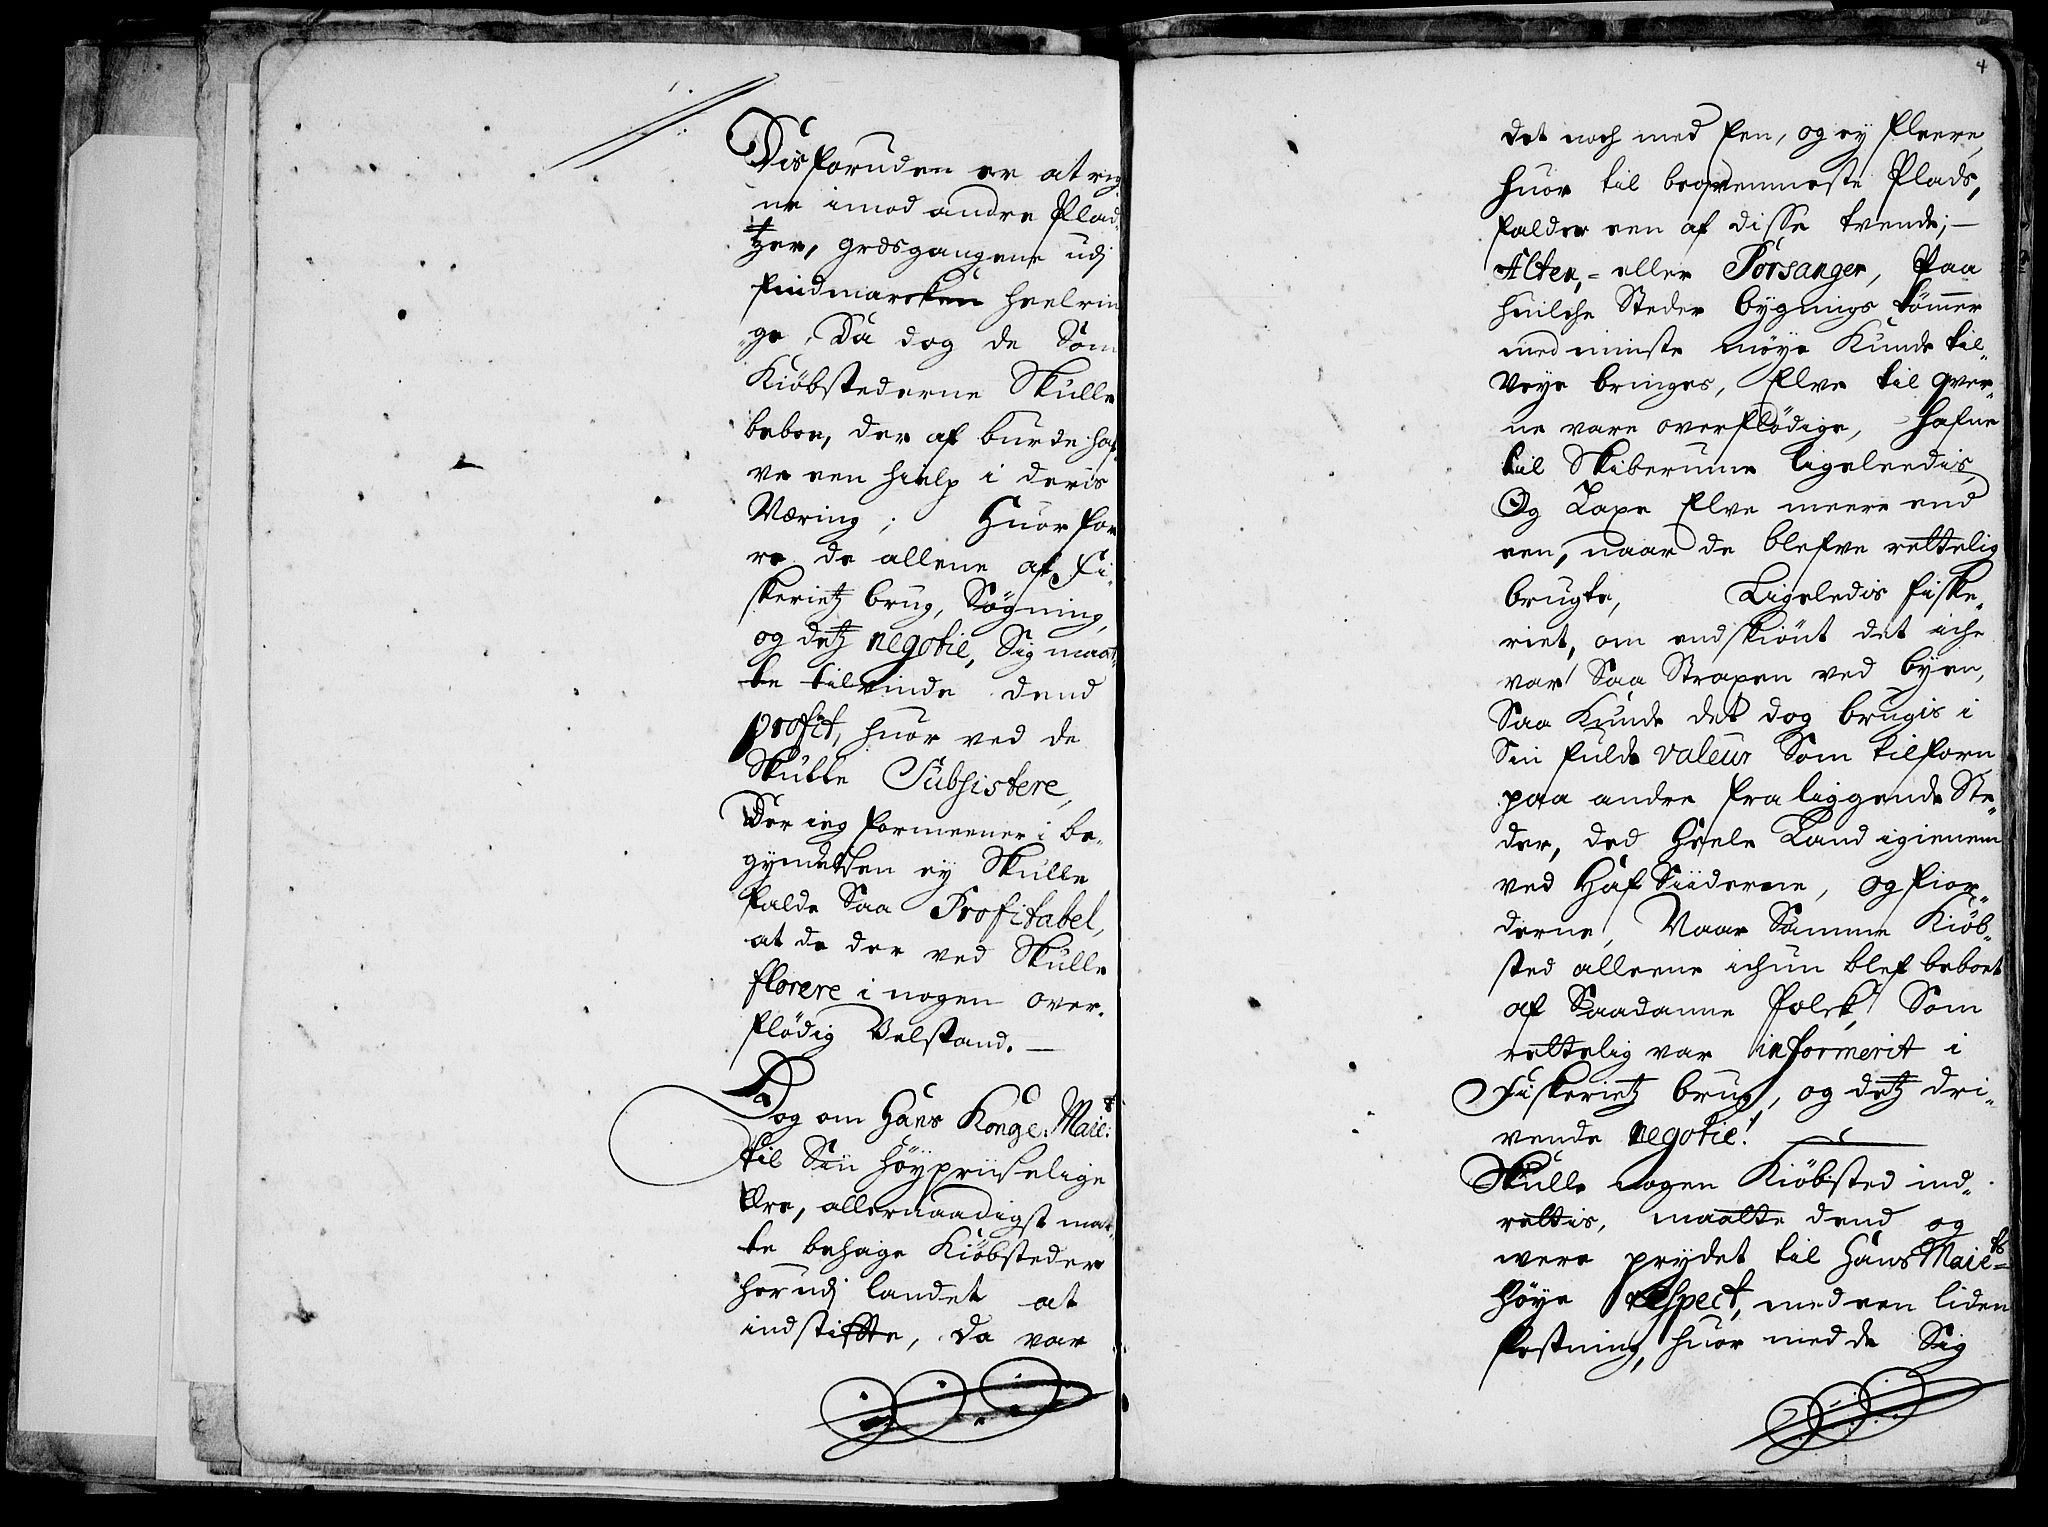 Disforuden er at reg
ne imod andre Plad-
tzer, græsgangene udj
findmarcken heel rin
ge, Da dog de Som
Kiöbstederne Skulle
beboe, der af burde haf-
ve een hielp i deris
Næring; Huor for
re de allene af Fi-
skerietz brug, Søgning,
og detz negotie, Sig maat-
te tilvinde dend
profit, huor ved de
Skulle Subsistere,
Der ieg formeener i be-
gyndelsen ey Skulle
falde Saa Profitabel,
at de der ved Skulle
florere i nogen over-
flödig Velstand. —
Dog om Hans Konge. Maie:t
til Sin Höypriiselige
Ære, allernaadigst maat-
te behage Kiöbsteder
her udj landet at
indstiffte, da var
4
det noch med Een, og ey fleere,
huor til beqvemmeste Plads,
falder een af disse tvende; —
Alten, = eller Porsanger, Paa
huilche Steder bygnings tömmer
med minste möye Kunde til-
Veye bringes, Elve til qver-
ne vare overflödige, Hafne
til Skiberumme ligeleedis,
Og Laxe Elve meere end
een, naar de blefve rettelig
brugte, Ligeledis fiske-
riet, om endskiönt det iche
var Saa Straxen ved byen,
Saa Kunde det dog brugis i
Sin fulde valeur Som tilforn
paa andre fra liggende Ste-
der, ded Heele Land igienem
ved Haf Siiderne, og fior-
derne, Naar Samme Kiöb-
sted alleene ichun blef beboet
af Saadanne Folck, Som
rettelig var informerit i
Fiskerietz brug, og detz dri-
vende negotie! —
Skulle nogen Kiöbsted ind-
rettis, maatte dend og
were prydet til Hans Maie:ts
Höye respect, med een liden
festning, huor med de Sig